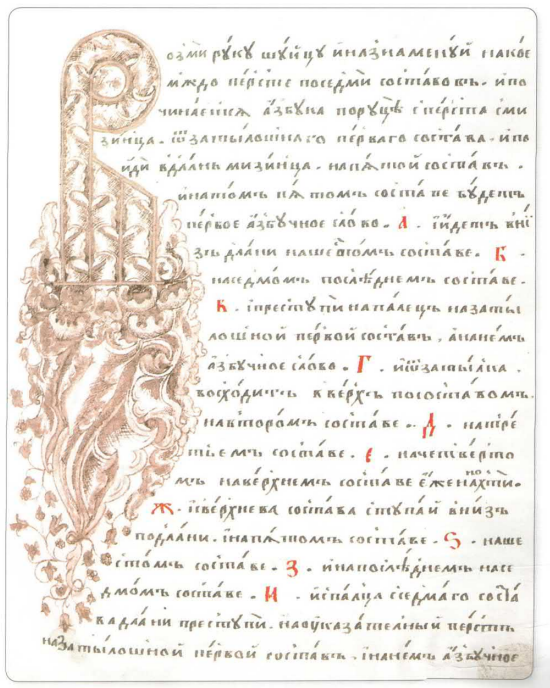 Возми руку шуйцу и назнаменуй на кое
мждо персте поседми составовъ. и по
чинается азбука поруцѣ сперста ми
зинца. ѿзатылошнаго перваго состава. ипо
йди вдлань мизинца. напятой составъ.
инатомъ пятомъ составе будетъ
первое азбучное слово. А. ийдетъ вни
зъ длани нашестомъ составе. Б.
наседмомъ послѣднемъ составе.
В. іпреступи напалецъ назаты
лошной первой составъ, инанемъ
азбучное слово. Г. иѿзатылка.
восходитъ вверхъ посоставомъ.
навторомъ составе. Д. натре
тьемъ составе. е. начетверто
мъ наверхнемъ составе ёженахти.
Ж. ісверхнева состава ступай внизъ
подлани. інапятомъ составе. Ѕ. наше
стомъ составе. З. инапослѣднемъ насе
дмомъ составе. И. испалца сседмаго соста
ва длани преступи. науказателный перстъ
назатылошной первой составъ. інанемъ азбучное